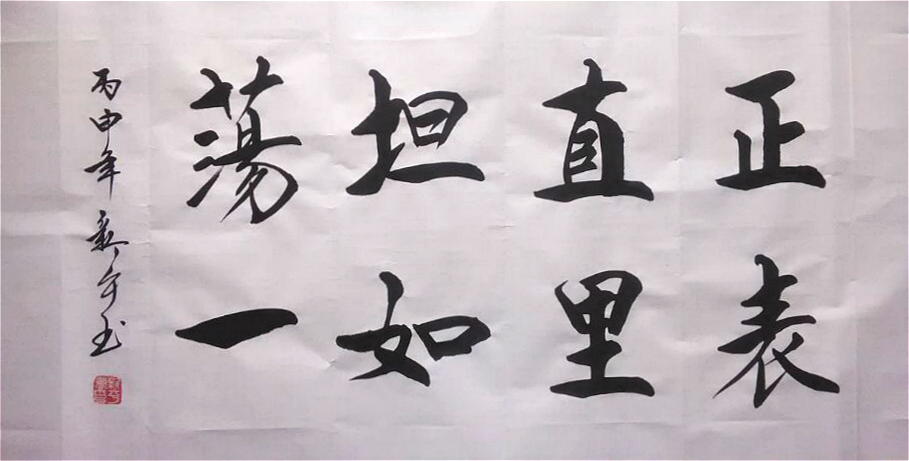 正直坦蕩
表里如一
丙申年